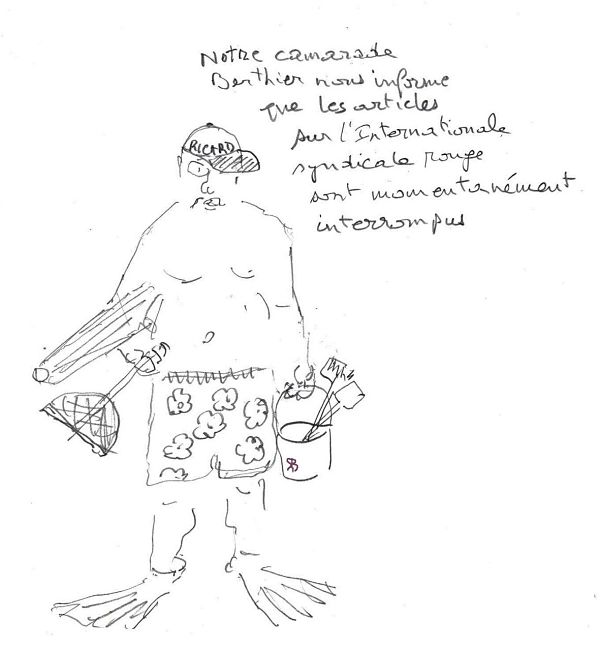 Notre camarade
Berthier nous informe
que les articles
sur l'Internationale
syndicale rouge
sont momentanément
interrompus
RICARD
RB